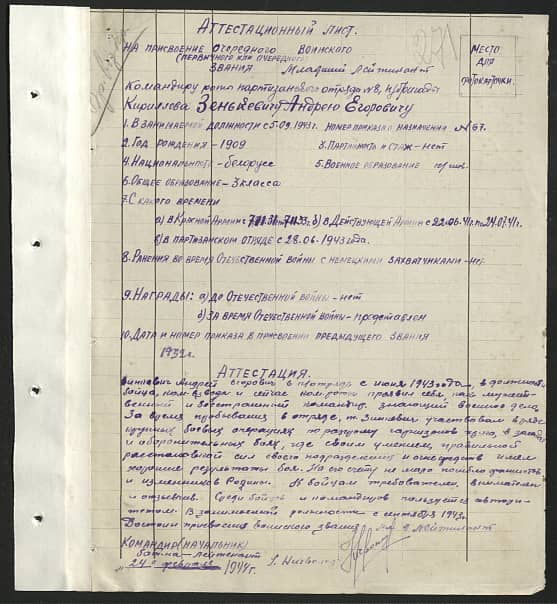 Аттестационный лист.
271
на присвоение очередного воинского
(первичного или очередного)
звания Младший лейтенант
место
для
фотокарточки.
Командиру роты партизанского отряда №8, бригады
Кириллова Зенькевичу Андрею Егоровичу
1. В занимаемой должности с 5.09.1943г. номер приказа о назначении №67.
2. Год рождения – 1909
3. Партийность и стаж – нет
4. Национальность – белорус
5. Военное образование
6. Общее образование – 3 класса
7. С какого времени
а) в Красной Армии с б) в Действующей Армии с 22.06.41г. по 24.07.41г.
в) в партизанском отряде с 28.06-1943 года.
8. Ранения во время Отечественной войны с немецкими захватчиками – нет
9. Награды: а) до Отечественной войны – нет
б) за время Отечественной войны – представлен
10. Дата и номер приказа о присвоении предыдущего звания
1932г.
Аттестация.
Андрей Егорович в партотряде с июня 1943 года, в должности
бойца, ком. взвода и сейчас ком. роты проявил себя, как мужест-
венный и командир, знающий военное дело.
За время пребывания в отряде, т. Зинкевич участвовал в ряде
крупных боевых операциях по разгрому гарнизонов пр-ка, в засадах
и оборонительных боях, где своим умением, правильной
расстановкой сил своего подразделения и огнесредств имел
хорошие результаты боя. На его счету не мало погибло фашистов
и изменников Родины. К бойцам требователен, внимателен
и отзывчив. Среди бойцов и командиров пользуется авторите-
том. В занимаемой должности с сентября 1943г.
Достоин присвоения воинского звания мл. лейтенант
Командир (начальник)
лейтенант
"24" февраля 1944г.